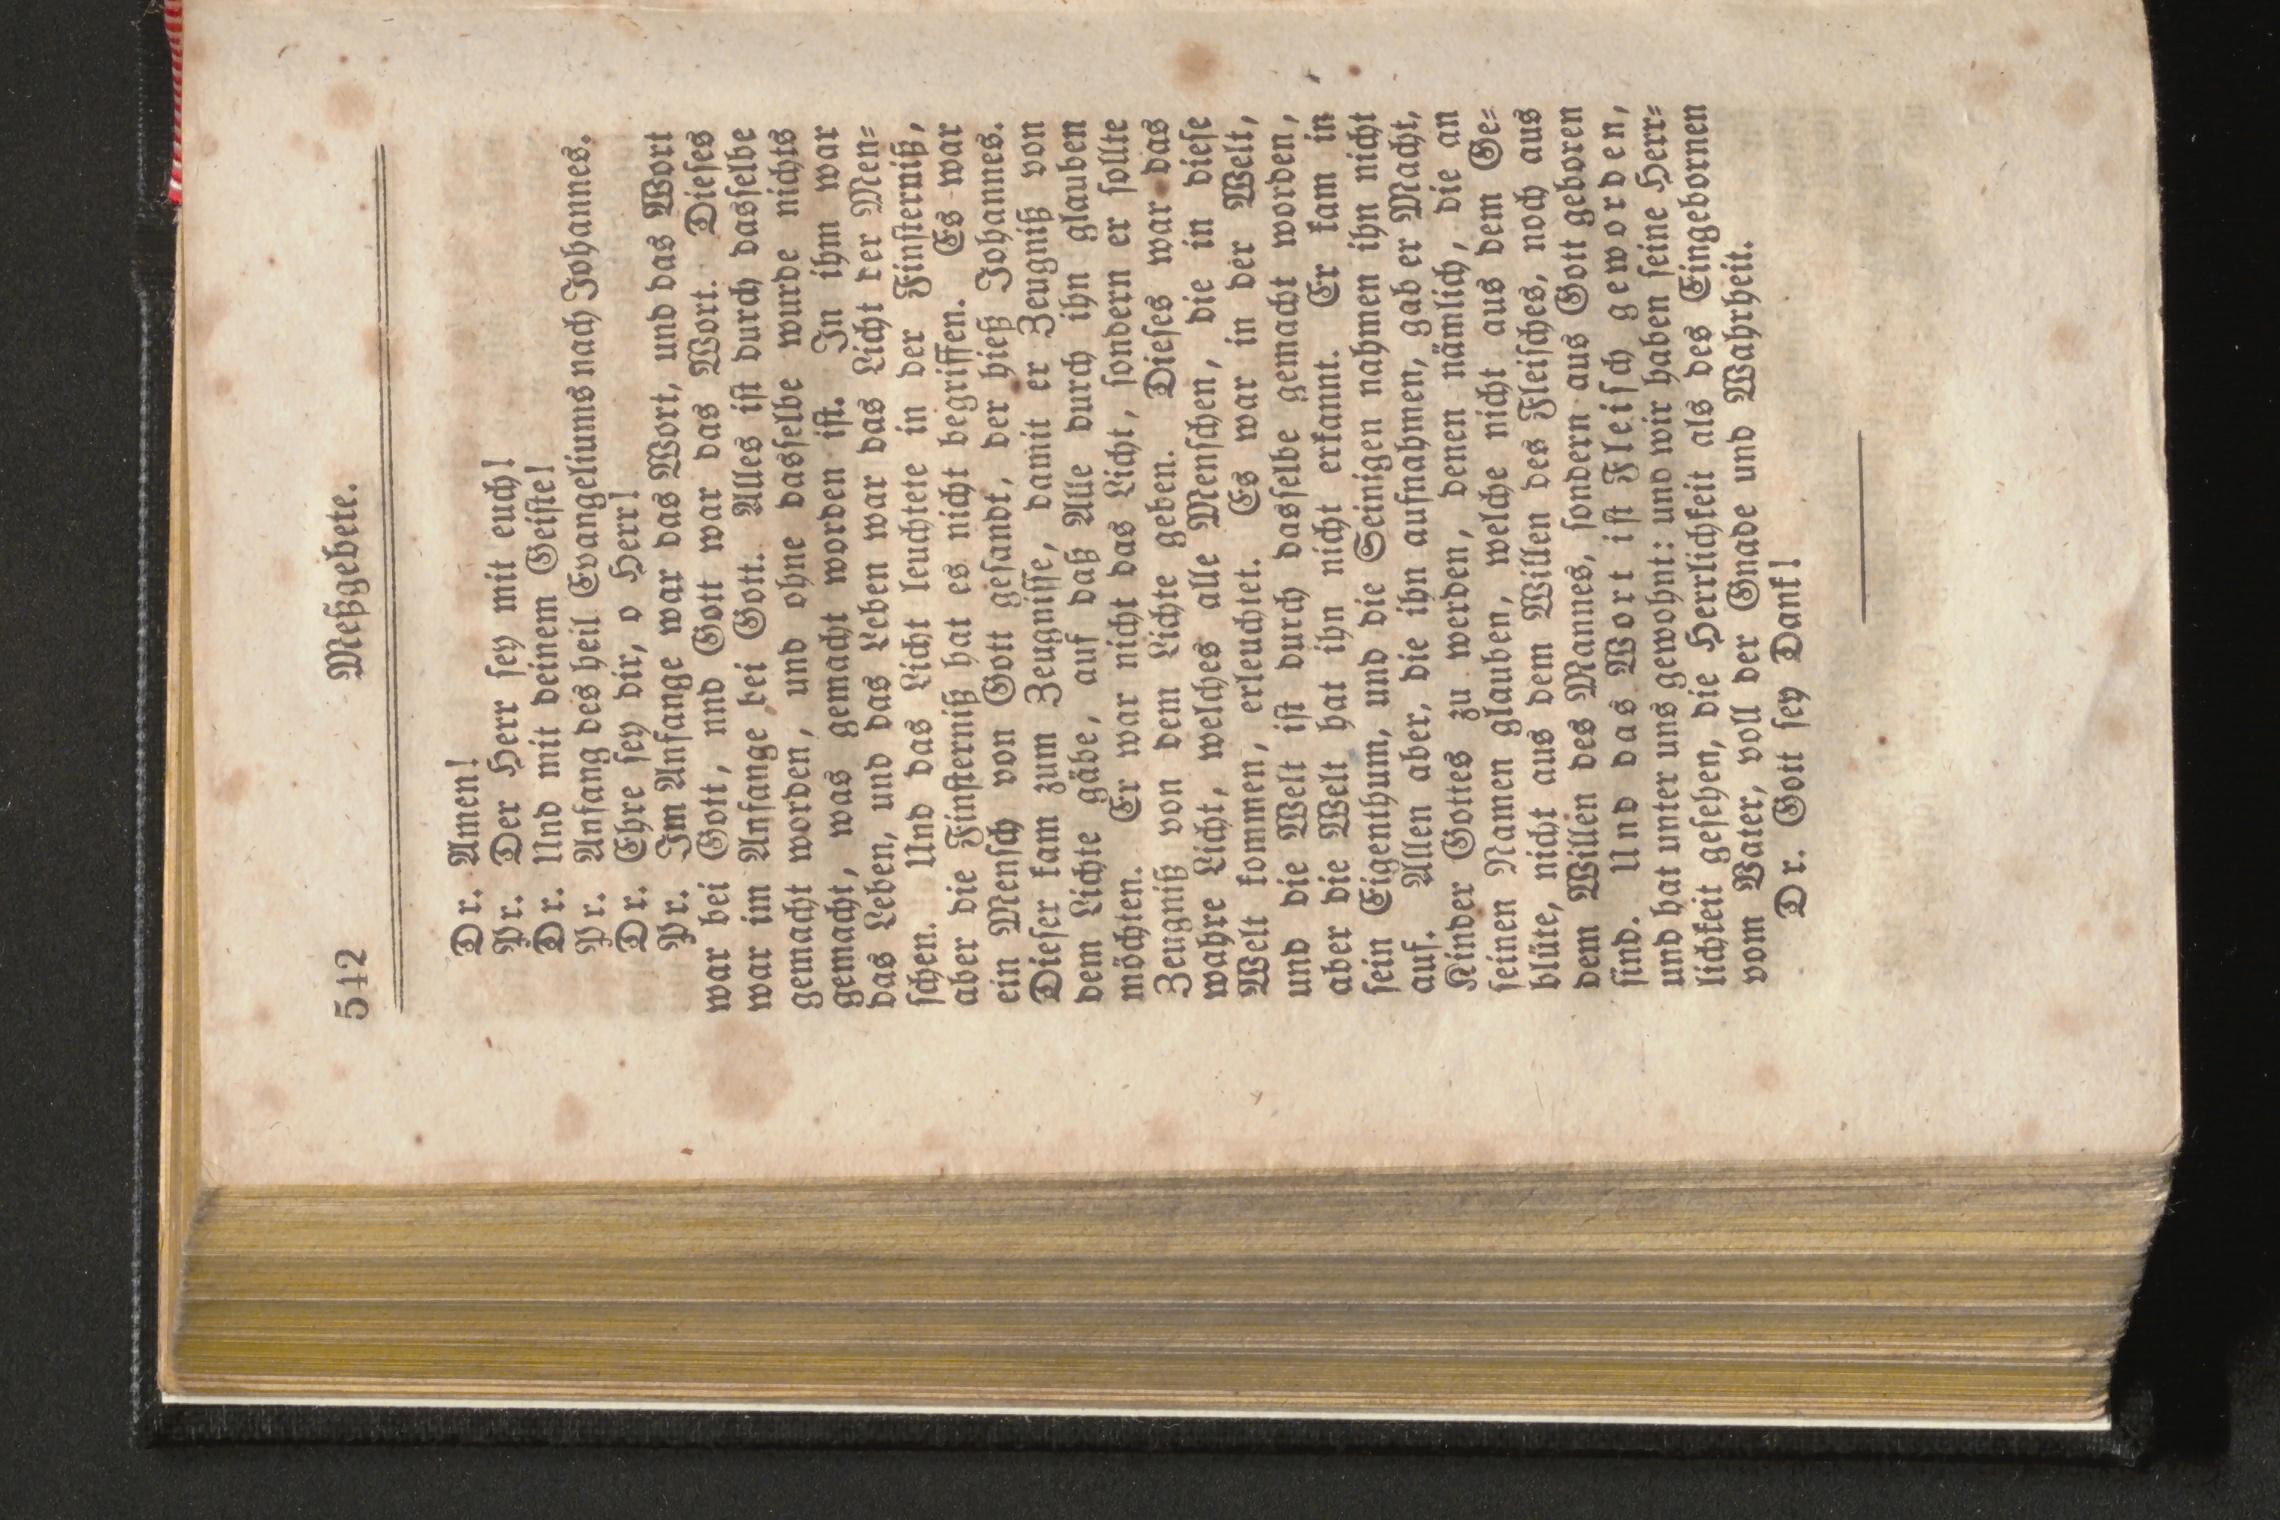 542 Meßgebete.
Dr. Amen!
Pr. Der Herr sey mit euch!
Dr. Und mit deinem Geiste!
Pr. Anfang des heil Evangeliums nach Johannes.
Dr. Ehre sey dir, o Herr!
Pr. Im Anfange war das Wort, und das Wort
war bei Gott, nnd Gott war das Wort. Dieses
war im Anfange bei Gott. Alles ist durch dasselbe
gemacht worden, und ohne dasselbe wurde nichts
gemacht, was gemacht worden ist. In ihm war
das Leben, und das Leben war das Licht der Men⸗
schen. Und das Licht leuchtete in der Finsterniß,
aber die Finsterniß hat es nicht begriffen. Es war
ein Mensch von Gott gesandt, der hieß Johannes.
Dieser kam zum Zeugnisse, damit er Zeugniß von
dem Lichte gäbe, auf daß Alle durch ihn glauben
möchten. Er war nicht das Licht, sondern er sollte
Zeugniß von dem Lichte geben. Dieses war das
wahre Licht, welches alle Menschen, die in diese
Welt kommen, erleuchtet. Es war in der Welt,
und die Welt ist durch dasselbe gemacht worden,
aber die Welt hat ihn nicht erkannt. Er kam in
sein Eigenthum, und die Seinigen nahmen ihn nicht
auf. Allen aber, die ihn aufnahmen, gab er Macht,
Kinder Gottes zu werden, denen nämlich, die an
seinen Namen glauben, welche nicht aus dem Ge⸗
blüte, nicht aus dem Willen des Fleisches, noch aus
dem Willen des Mannes, sondern aus Gott geboren
sind. Und das Wort ist Fleisch geworden,
und hat unter uns gewohnt: und wir haben seine Herr⸗
lichkeit gesehen, die Herrlichkeit als des Eingebornen
vom Vater, voll der Gnade und Wahrheit.
Dr. Gott sey Dank!